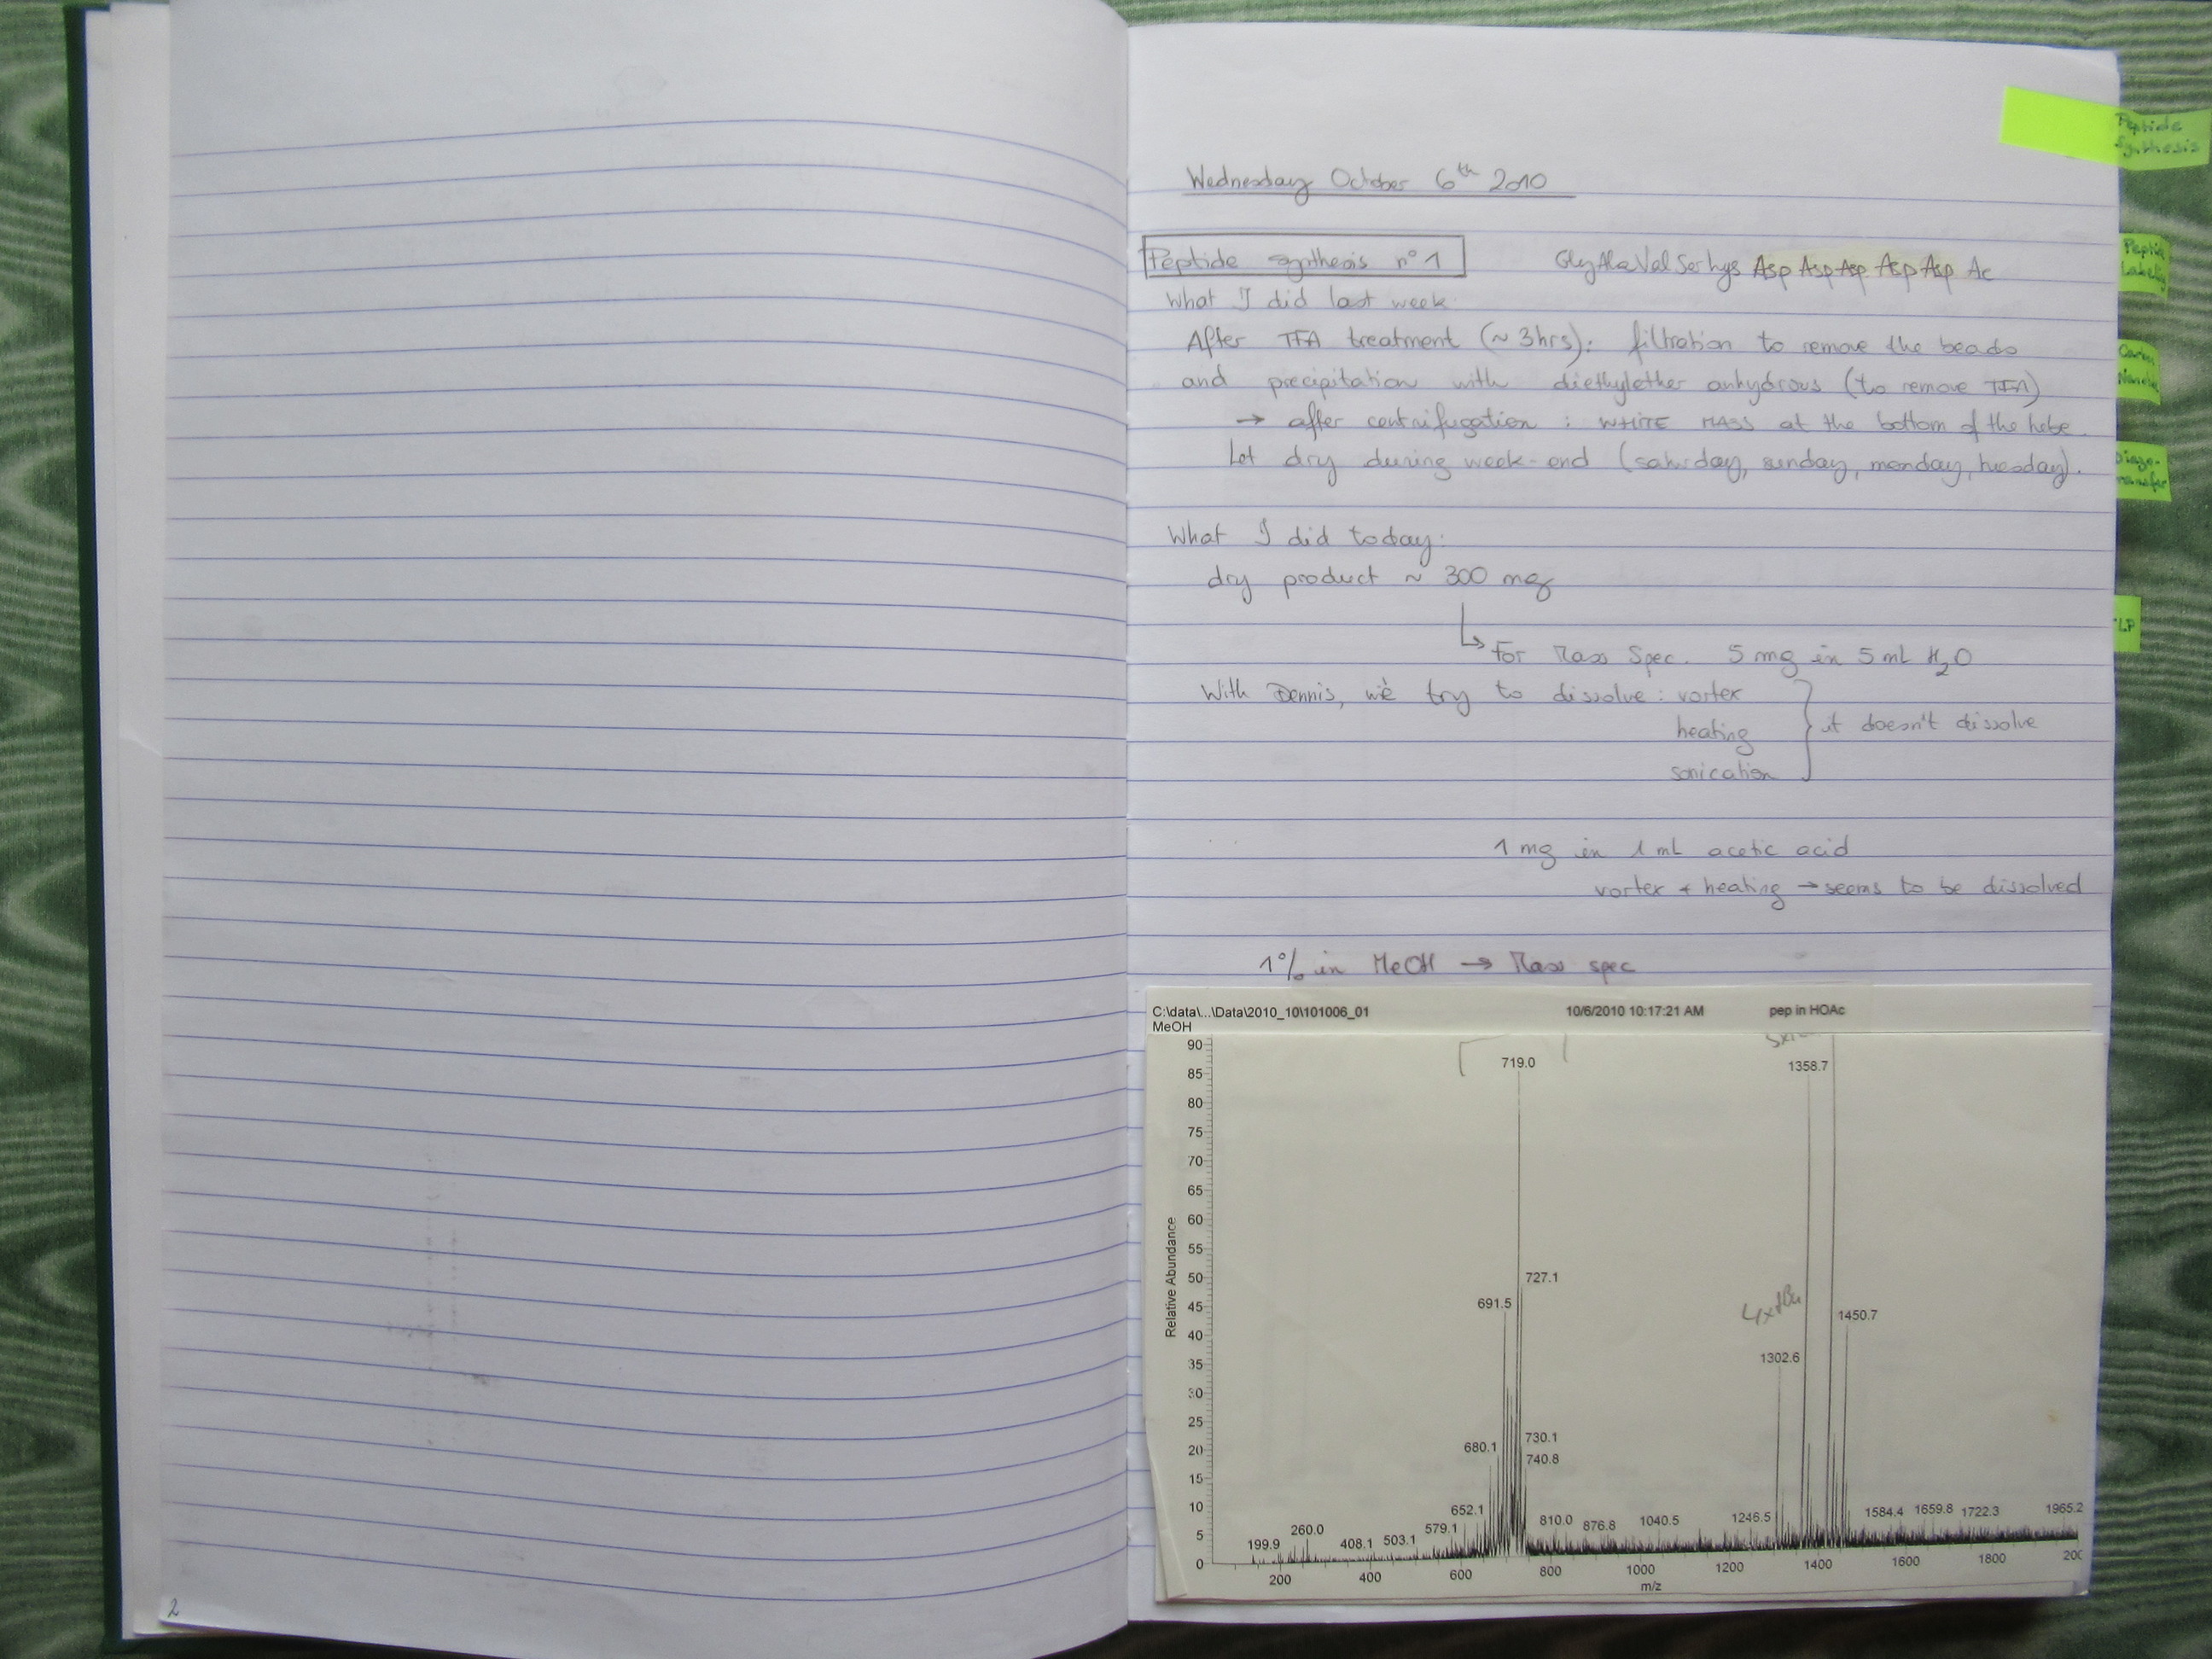 Wednesday October 6th 2010
Peptide synthesis n°1
GlyAlaValSerLys Asp Asp Asp Asp Asp Ac
What I did last week
After TFA treatment (~3hrs): filtration to remove the beads
and precipitation with diethylether anhydrous (to remove TFA)
→ after centrifugation : WHITE MASS at the bottom of the tube.
Let dry during week-end (saturday, sunday, monday, tuesday).
What I did today:
dry product ~ 300 mg
For Mass Spec. 5 mg in 5 mL H2O
With Dennis, we try to dissolve : vortex
heating
sonication
it doesn't dissolve
1 mg in 1 mL acetic acid
vortex + heating → seems to be dissolved
1% in MeOH → Mass spec
C:\data\...\Data\2010_10\101006_01 10/6/2010 10:17:21 AM pep in HOAc
MeOH
90
85
80
75
70
65
60
55
50
45
40
35
30
25
20
15
10
5
0
Relative Abundance
719.0
1358.7
727.1
691.5
4xtBu
1450.7
1302.6
730.1
680.1
740.8
652.1
579.1
260.0
199.9
408.1
503.1
810.0
876.8
1040.5
1246.5
1584.4
1659.8
1722.3
1965.2
200 400 600 800 1000 1200 1400 1600 1800
m/z
Peptide
Synthesis
Peptide
Labeling
Diazo-
transfer
2